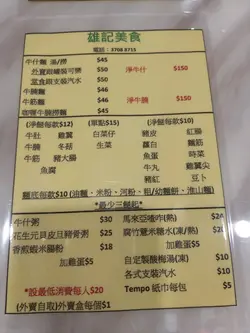 雄記美食
電話：3708 8715
牛什麵 湯/撈 $45
外賣跟罐裝可樂 $50
堂食跟支裝汽水 $50
牛腩麵 $46
牛筋麵 $46
咖喱牛腩撈麵 $46
淨牛什 $150
淨牛腩 $150
(淨餸每款$12) (單點$15) (淨餸每款$10)
牛肚 雞翼 白菜仔 豬皮 紅腸
牛腩 冬菇 生菜 蘿白 雞翼
牛筋 豬大腸 魚蛋 時菜
元腸 牛丸
豬紅 豆卜
麵底每款$10 (油麵、米粉、河粉、粗/幼麵餅、淮山麵)
*最少三餸起*
牛什粥 $30
花生元貝皮豆豬骨粥 $25
香煎蝦米腸粉 $18
加雞蛋$5
馬來亞喳咋(熱)
腐竹薏米糖水(凍/熱) $20
加雞蛋$5
自定製酸梅湯(凍) $10
各式支裝汽水 $10
Tempo 紙巾每包 $5
*設最低消費每人$20
(外賣自取)外賣盒每個$1